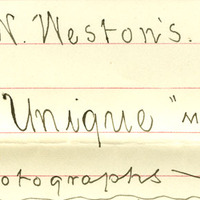 W. Weston's.
Unique "M
otographs —